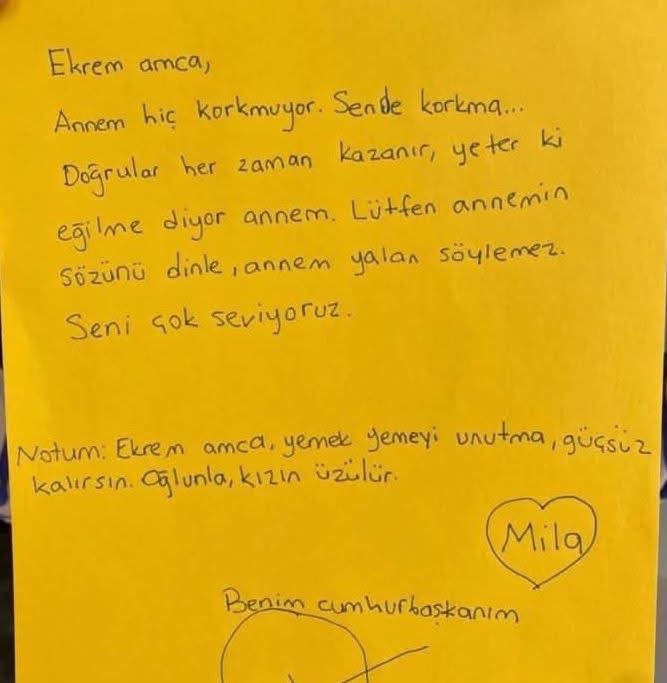 Ekrem amca,
Annem hiç korkmuyor. Sende korkma...
Doğrular her zaman kazanır, yeter ki
eğilme diyor annem. Lütfen annemin
sözünü dinle, annem yalan söylemez.
Seni çok seviyoruz.
Notum: Ekrem amca, yemek yemeyi unutma, güçsüz
kalırsın. Oğlunla, kızın üzülür.
Mila
Benim cumhurbaşkanım